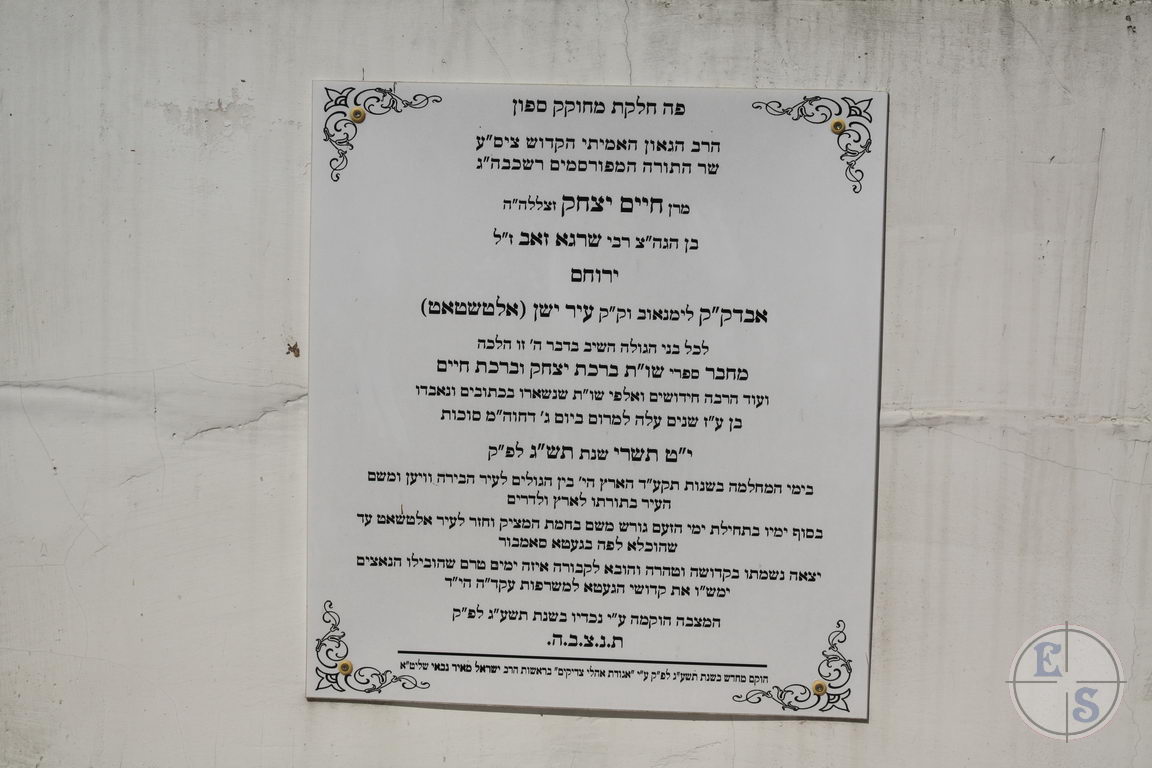 פה חלקת מחוקק ספון
הרב הגאון האמיתי הקדוש ציס"ע
שר התורה המפורסמים רשכבה"ג
מרן חיים יצחק זצללה"ה
בן הגה"צ רבי שרגא זאב ז"ל
ירוחם
אבדק"ק לימנאוב וק"ק עיר ישן (אלטשטאט)
לכל בני הגולה השיב בדבר ה' זו הלכה
מחבר ספרי שו"ת ברכת יצחק וברכת חיים
ועוד הרבה חידושים ואלפי שו"ת שנשארו בכתובים ונאבדו
בן ע"ז שנים עלה למרום ביום ג' דחוה"מ סוכות
י"ט תשרי שנת תש"ג לפ"ק
בימי המחלמה בשנות תקע"ד הארץ הי' בין הגולים לעיר הבירה וויען ומשם
העיר בתורתו לארץ ולדרים
בסוף ימיו בתחילת ימי הזעם גורש משם בחמת המציק וחזר לעיר אלטשאט עד
שהוכלא לפה בגעטא סאמבור
יצאה נשמתו בקדושה וטהרה והובא לקבורה איזה ימים טרם שהובילו הנאצים
ימש"ו את קדושי הגעטא למשרפות עקד"ה הי"ד
המצבה הוקמה ע"י נכדיו בשנת תשע"ג לפ"ק
ת.נ.צ.ב.ה.
הוקם מחדש בשנת תשע"ג לפ"ק ע"י "אגודת אהלי צדיקים" בראשות הרב ישראל מאיר גבאי שליט"א
E
S